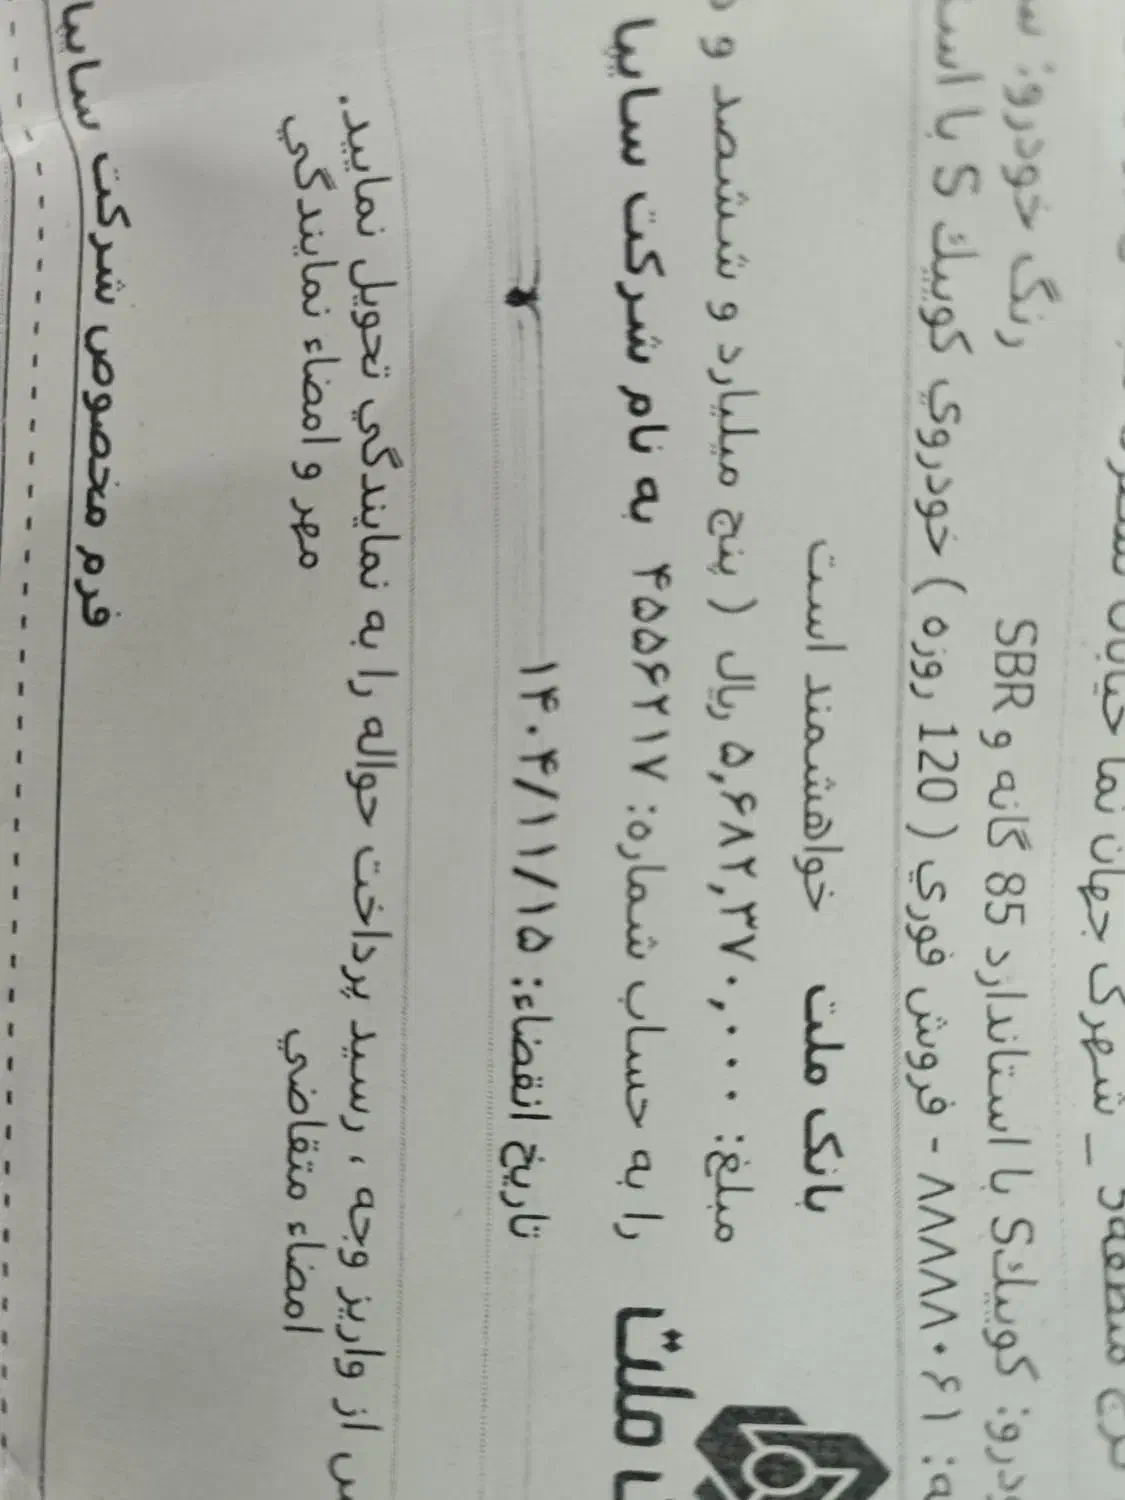 شهرک جهان نما خیابان
رنگ خودرو:
خودرو: كوييكS با استاندارد 85 گانه و SBR
۸۸۸۸۸۰۶۱ - فروش فوري ( 120 روزه ) خودروي كوييك S با
بانک ملت خواهشمند است
مبلغ: ۵,۶۸۲,۳۷۰,۰۰۰ ریال ( پنج میلیارد و ششصد و
را به حساب شماره: ۴۵۵۶۲۱۷ به نام شرکت سایپا
ملت
تاریخ انقضاء: ۱۴۰۴/۱۱/۱۵
از واریز وجه ، رسید پرداخت حواله را به نمایندگي تحویل نمایید.
امضاء متقاضي مهر و امضاء نمایندگي
فرم مخصوص شرکت سایپا